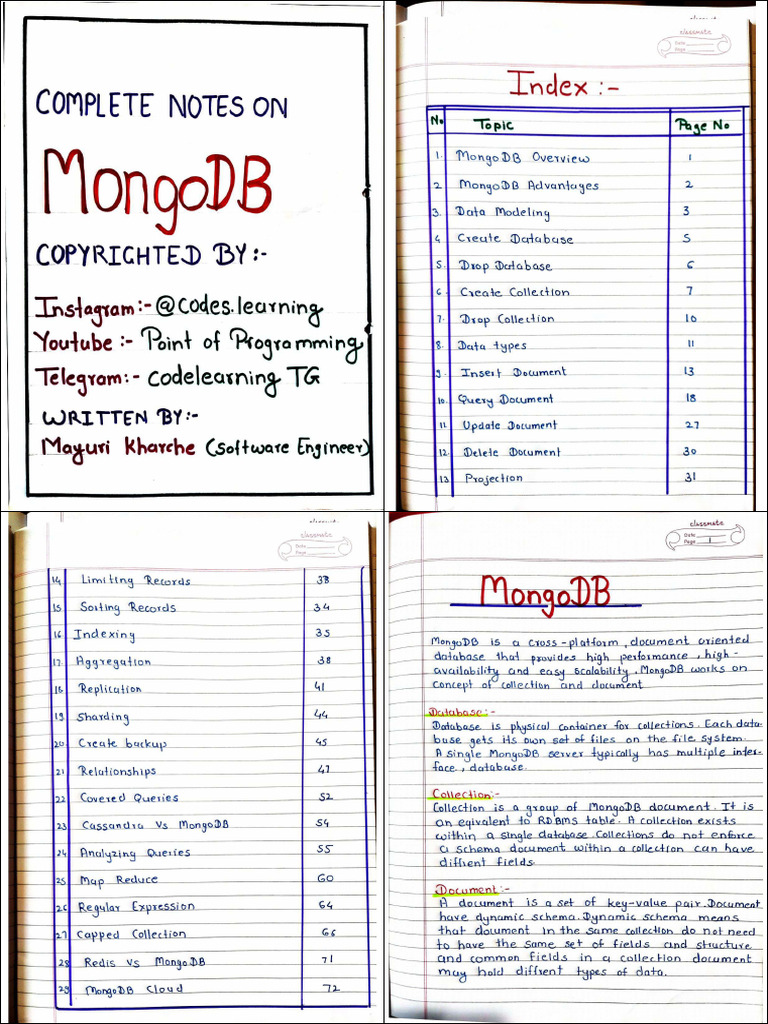 COMPLETE NOTES ON
MongoDB
COPYRIGHTED BY:-
Instagram:- @codes.learning
Youtube :- Point of Programming
Telegram:- codelearning TG
WRITTEN BY:-
Mayuri Kharche (Software Engineer)
classmate
Date
Page
Index :-
No Topic Page No
1. MongoDB Overview 1
2. MongoDB Advantages 2
3. Data Modeling 3
4 Create Database 5
5. Drop Database 6
6 Create Collection 7
7. Drop Collection 10
8. Data types 11
9. Insert Document 13
10. Query Document 18
11 Update Document 27
12. Delete Document 30
13 Projection 31
classmate
Date
Page
14 Limiting Records 33
15 Sorting Records 34
16 Indexing 35
17. Aggregation 38
18 Replication 41
19 Sharding 44
20 Create backup 45
21 Relationships 47
22 Covered Queries 52
23 Cassandra Vs MongoDB 54
24 Analyzing Queries 55
25 Map Reduce 60
26 Regular Expression 64
27 Capped Collection 66
28 Redis Vs MongoDB 71
29 MongoDB Cloud 72
classmate
Date
Page 1
MongoDB
MongoDB is a cross-platform, document oriented
database that provides high performance, high-
availability and easy scalability. MongoDB works on
concept of collection and document
Database:-
Database is physical container for collections. Each data-
base gets its own set of files on the file system.
A single MongoDB server typically has multiple inter-
face, database.
Collection:-
Collection is a group of MongoDB document. It is
an eqivalent to RDBMS table. A collection exists
within a single database. Collections do not enforce
a schema document within a collection can have
diffrent fields.
Document:-
A document is a set of key-value pair. Document
have dynamic schema. Dynamic schema means
that document in the same collection do not need
to have the same set of fields and structure
and common fields in a collection document
may hold diffrent types of data.